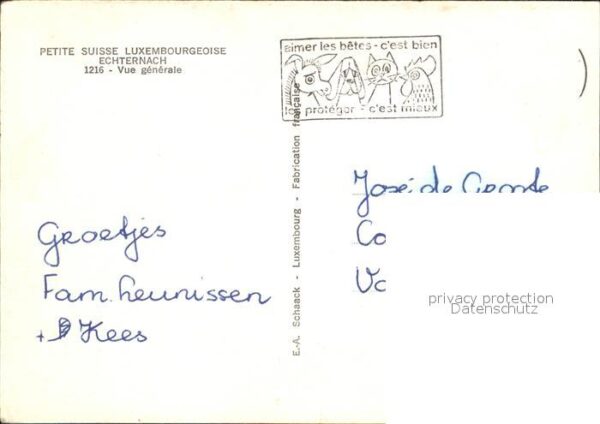 PETITE SUISSE LUXEMBOURGEOISE
ECHTERNACH
1216 - Vue générale
aimer les bêtes - c'est bien
protéger - c'est mieux
E.-A. Schaack - Luxembourg - Fabrication française
Groetjes
Fam. heunissen
+ Kees
José de Comte
Co
Va
privacy protection
Datenschutz